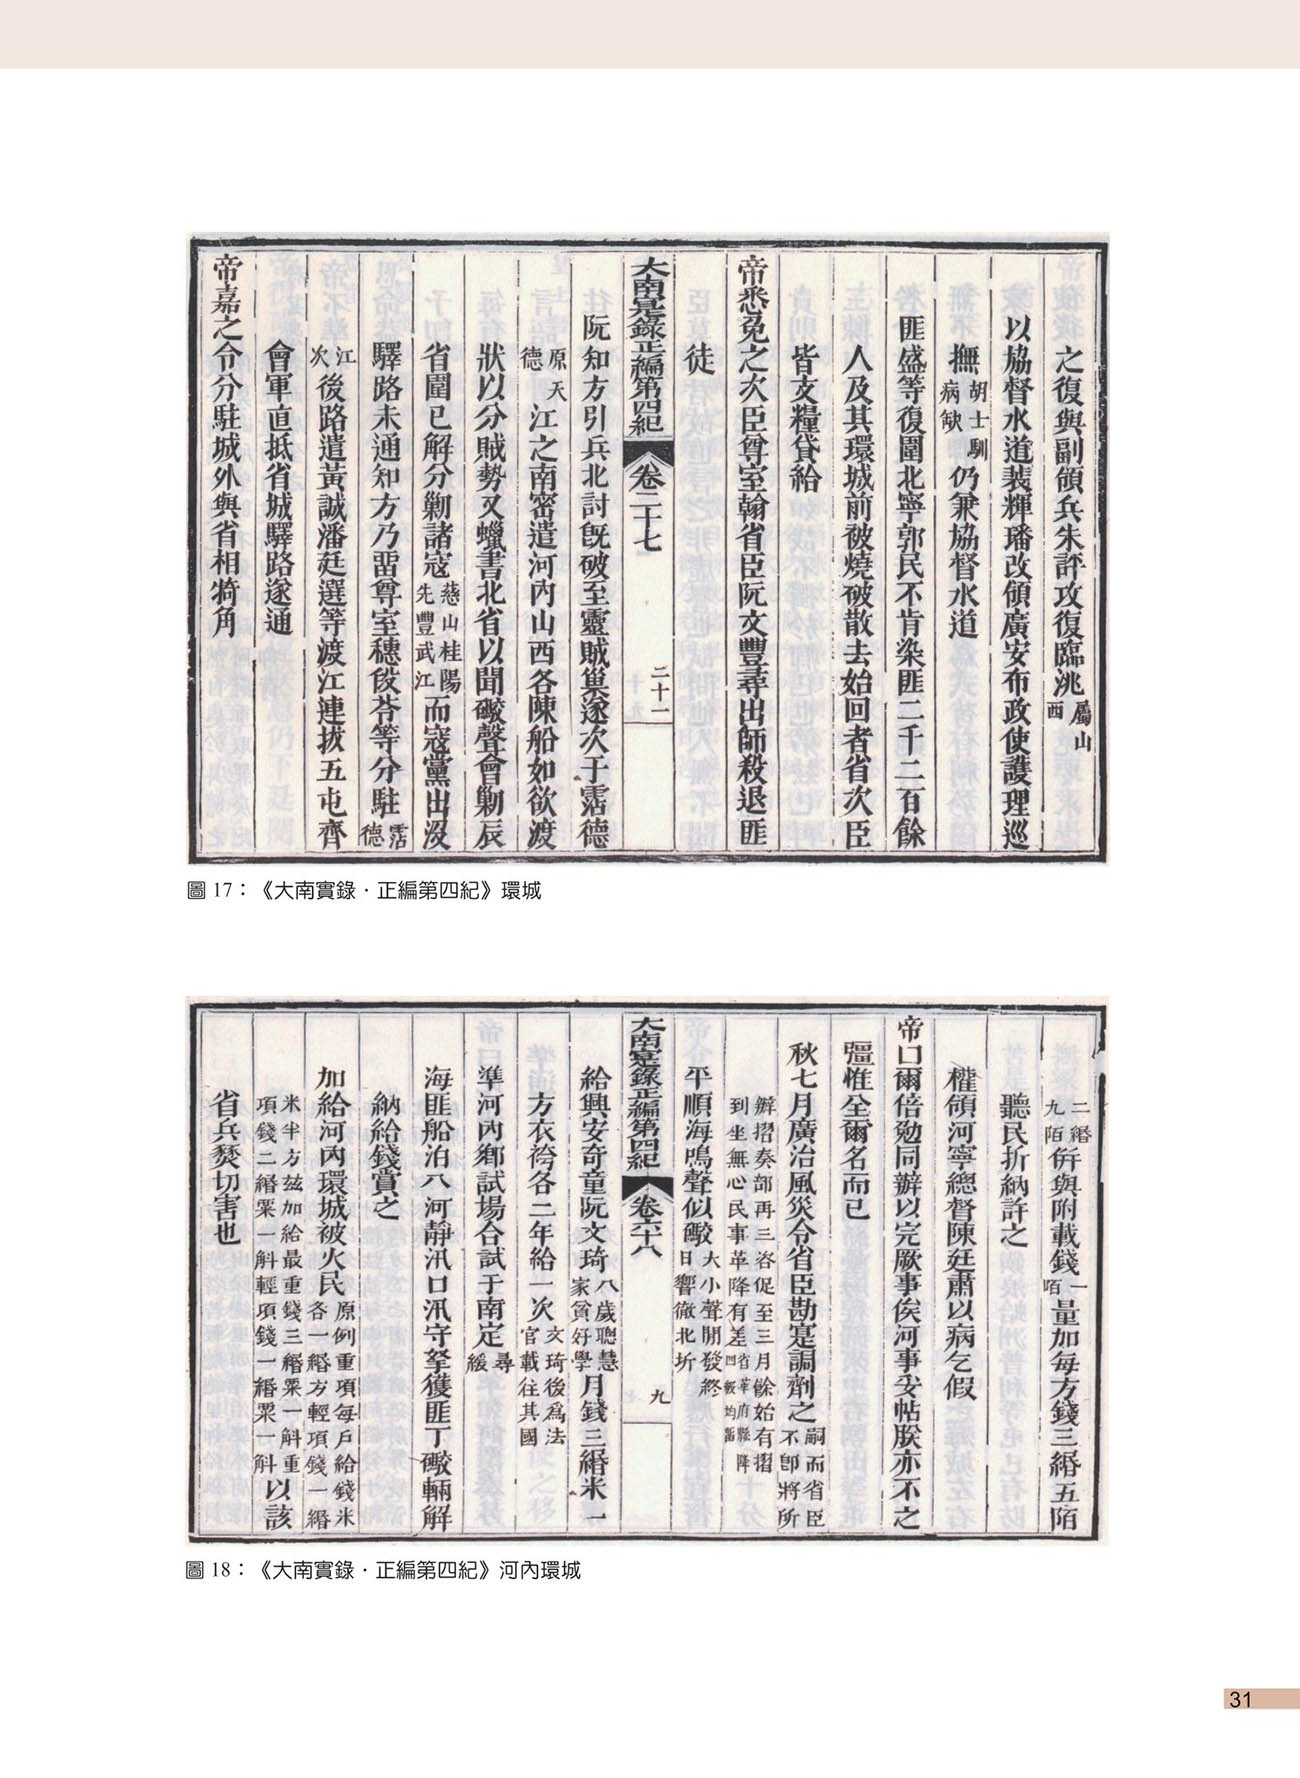 之復與副領兵朱評攻復臨洮屬山西
以協督水道裴輝璠改領廣安布政使護理巡
撫胡士馴病缺仍兼協督水道
匪盛等復圍北寧郭民不肯染匪二千二百餘
人及其環城前被燒破散去始回者省次臣
皆支糧貸給
帝悉免之次臣尊室翰省臣阮文豐尋出師殺退匪
徒
大南寔錄正編第四紀 卷二十七 二十
阮知方引兵北討旣破至靈賊巢遂次于霑德
原天德江之南密遣河內山西各陳船如欲渡
狀以分賊勢又蠟書北省以聞礮聲會勦辰
省圍已解分勦諸寇慈山桂陽先豐武江而寇黨出沒
驛路未通知方乃畱尊室穗、苓等分駐霑德
江次後路遣黃誠潘廷選等渡江連拔五屯齊
會軍直抵省城驛路遂通
帝嘉之令分駐城外與省相犄角
圖 17：《大南實錄．正編第四紀》環城
二緡九陌併與附載錢一陌量加每方錢三緡五陌
聽民折納許之
權領河寧總督陳廷肅以病乞假
帝曰爾倍勉同辦以完厥事俟河事妥帖朕亦不之
彊惟全爾名而已
秋七月廣治風災令省臣勘寔調劑之嗣而省臣不卽將所
辦摺奏部再三咨促至三月餘始有摺到坐無心民事革降有差省革府縣降四級均畱
平順海鳴聲似礮大小聲間發終日響徹北圻
大南寔錄正編第四紀 卷六十八 九
給興安奇童阮文琦八歲聰慧家貧好學月錢三緡米一
方衣袴各二年給一次文琦後爲法官載往其國
準河內鄉試場合試于南定尋緩
海匪船泊入河靜汛口汛守拏獲匪丁礮輛解
納給錢賞之
加給河內環城被火民原例重項每戶給錢米各一緡方輕項錢一緡
米半方茲加給最重錢三緡粟一斛重項錢二緡粟一斛輕項錢一緡粟一斛以該
省兵燹切害也
圖 18：《大南實錄．正編第四紀》河內環城
31